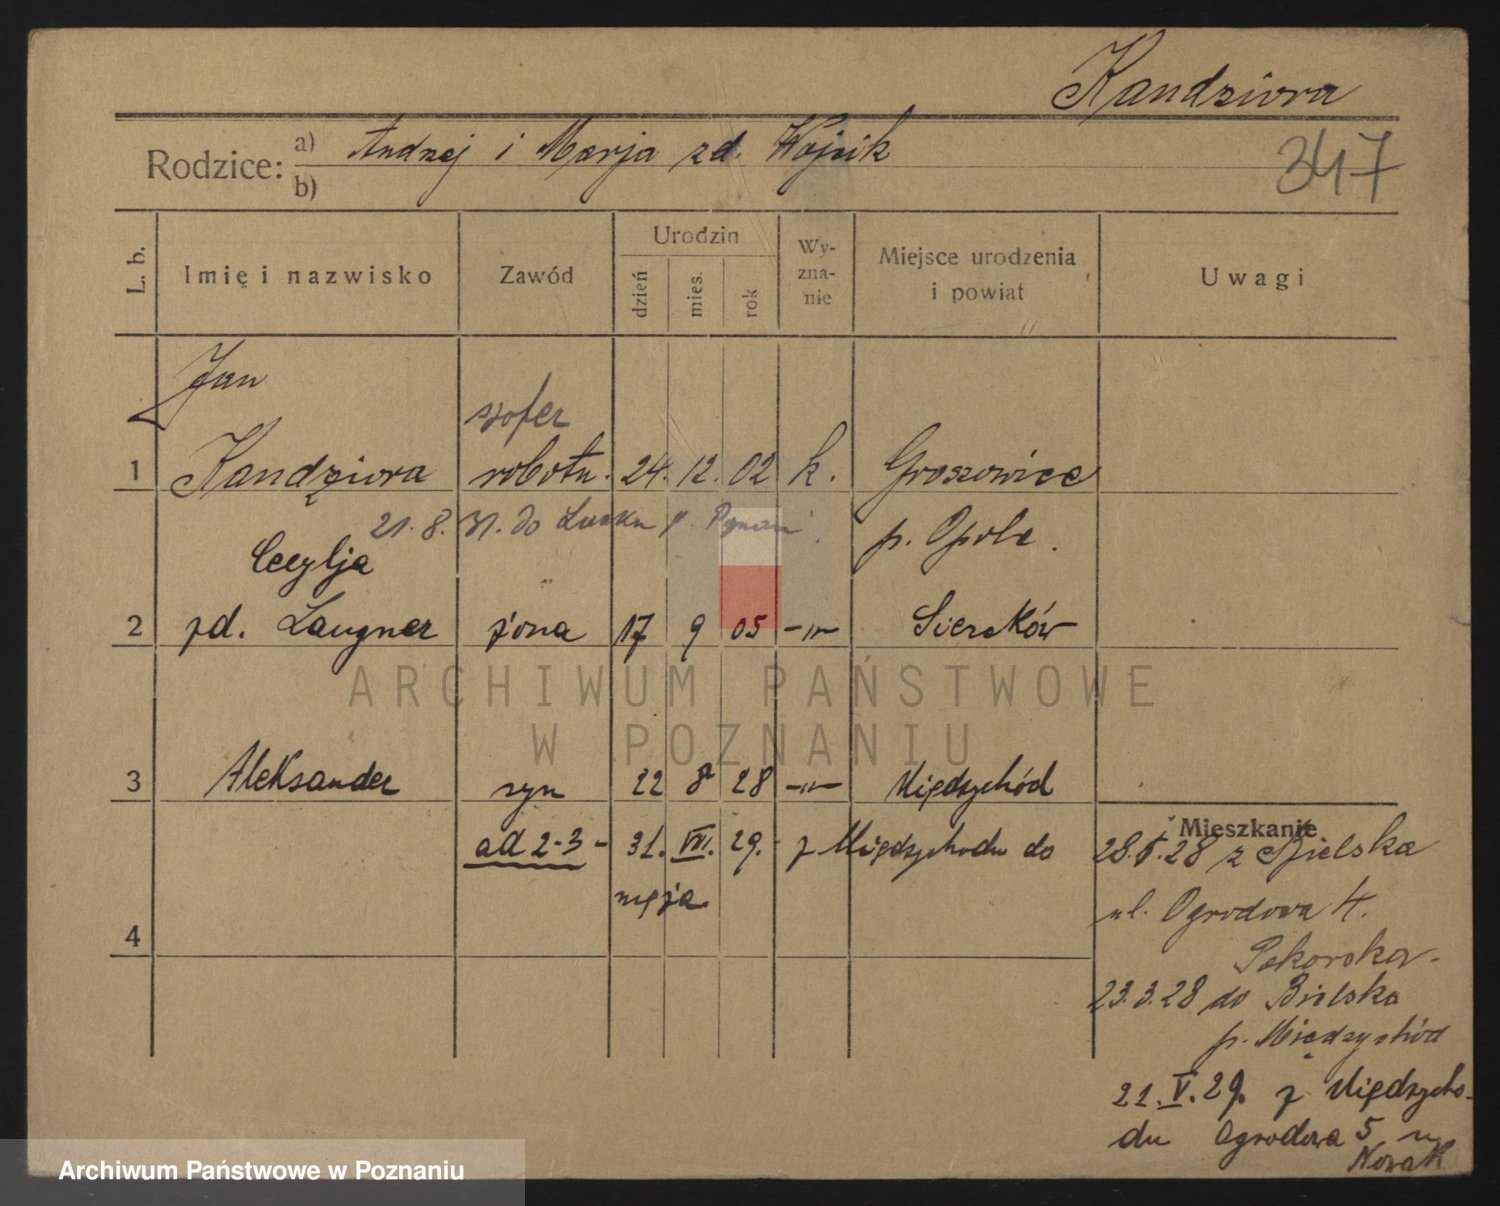 Kandziora
347
Rodzice: a) Andrzej i Marja zd. Wójcik
b)
L. b. Imię i nazwisko Zawód Urodzin dzień mies. rok Wy-zna-nie Miejsce urodzenia i powiat Uwagi
Jan
szofer
1 Kandziora robotn. 24. 12. 02 k. Groszowice
21. 8. 31. do p. Poznań p. Opole.
Cecylja
2 zd. Langner żona 17 9 05 -„- Sieraków
ARCHIWUM PAŃSTWOWE
W POZNANIU
3 Aleksander syn 22 8 28 -„- Międzychód
ad 2-3 - 31. VIII. 29. z Międzychodu do
męża
4
Mieszkanie
28.5.28 z Bielska
ul. Ogrodowa 4.
Pokorska.
23.3.28 do Bielska
p. Międzychód
21.V.29. z Międzycho-
du Ogrodowa 5 u
Nowak
Archiwum Państwowe w Poznaniu